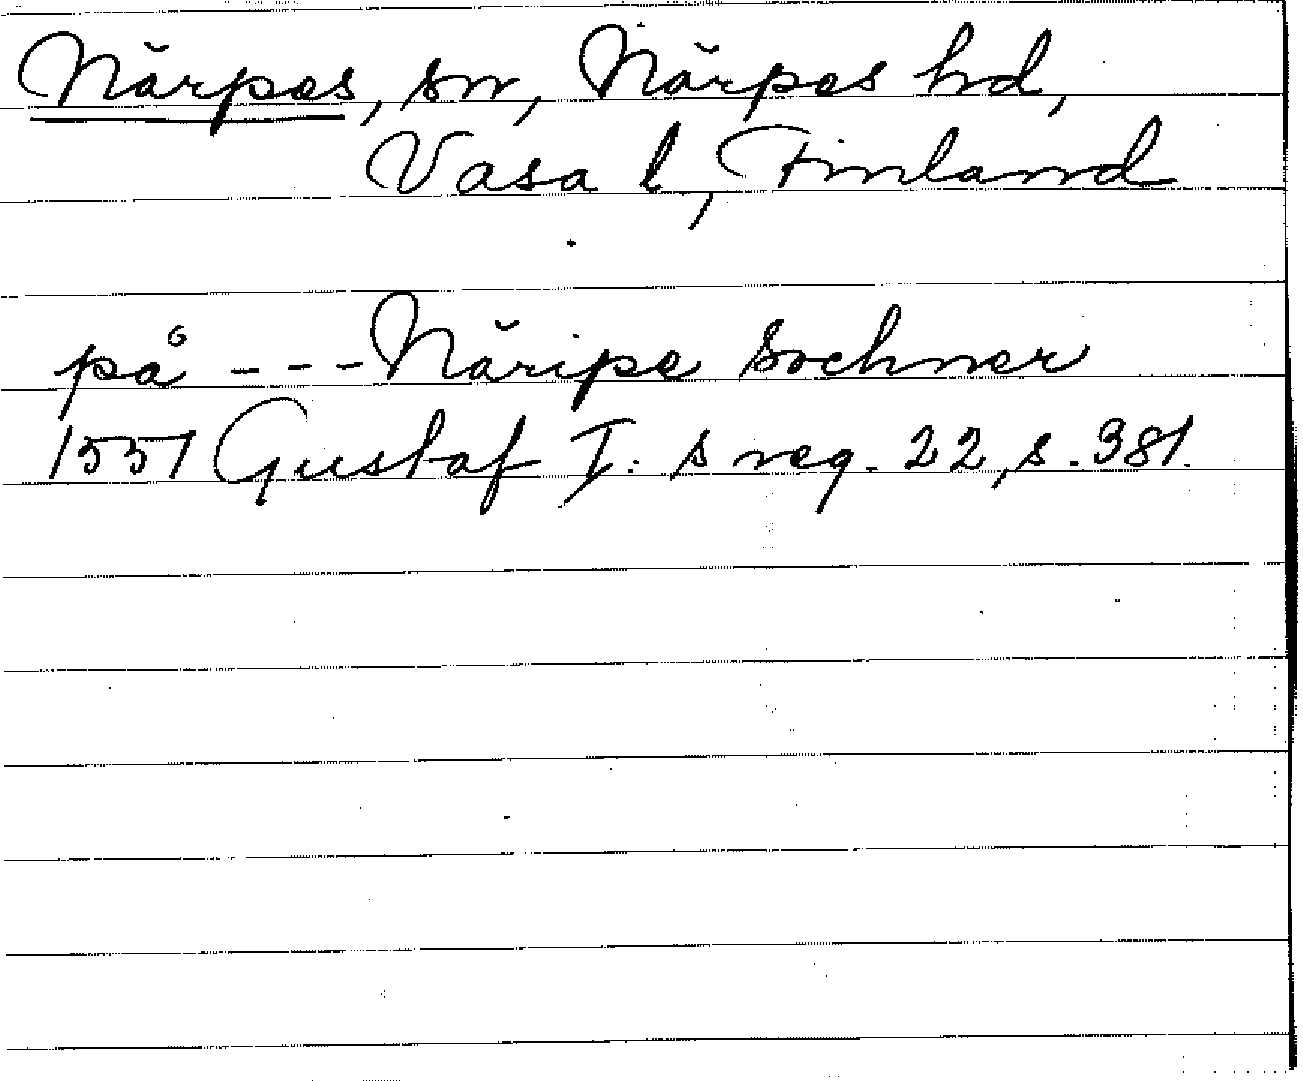 Närpes, sn, Närpes hd,
Vasa l, Finland
på --- Näripe Sochner
1551 Gustaf I: s reg. 22, s. 381.